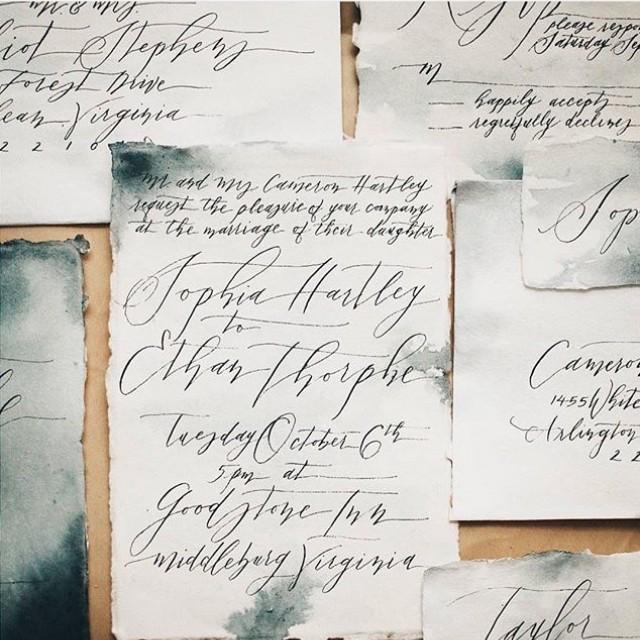 mr & mrs.
Stephens
Forest Drive
Virginia
2 2 1 0
please
Saturday
M
happily accepts
regretfully declines
mr and mrs Cameron Hartley
request the pleasure of your company
at the marriage of their daughter
Sophia Hartley
to
Ethan Thorphe
Tuesday October 6th
5 pm at
Goodstone Inn
Middleburg Virginia
Sop
Cameron
1455 White
Arlington
2 2
Taylor